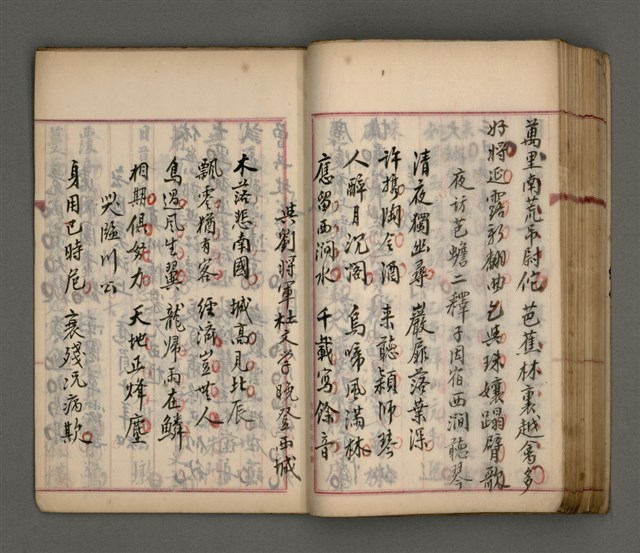 萬里南荒吊尉佗　芭蕉林裏越禽多
好將延露新翻曲　乞與珠孃蹋臂歌
夜訪芭蟾二釋子因宿西澗聽琴
清夜獨幽尋　巖扉落葉深
許攜陶令酒　來聽穎師琴
人醉月沉閣　烏啼風滿林
應留西澗水　千載寫餘音
與劉將軍杜文學晚登西城
木落悲南國　城高見北辰
飄零猶有客　經濟豈無人
鳥過風生翼　龍歸雨在鱗
相期俱努力　天地正烽塵
哭臨川公
身用已時危　衰殘況病欺